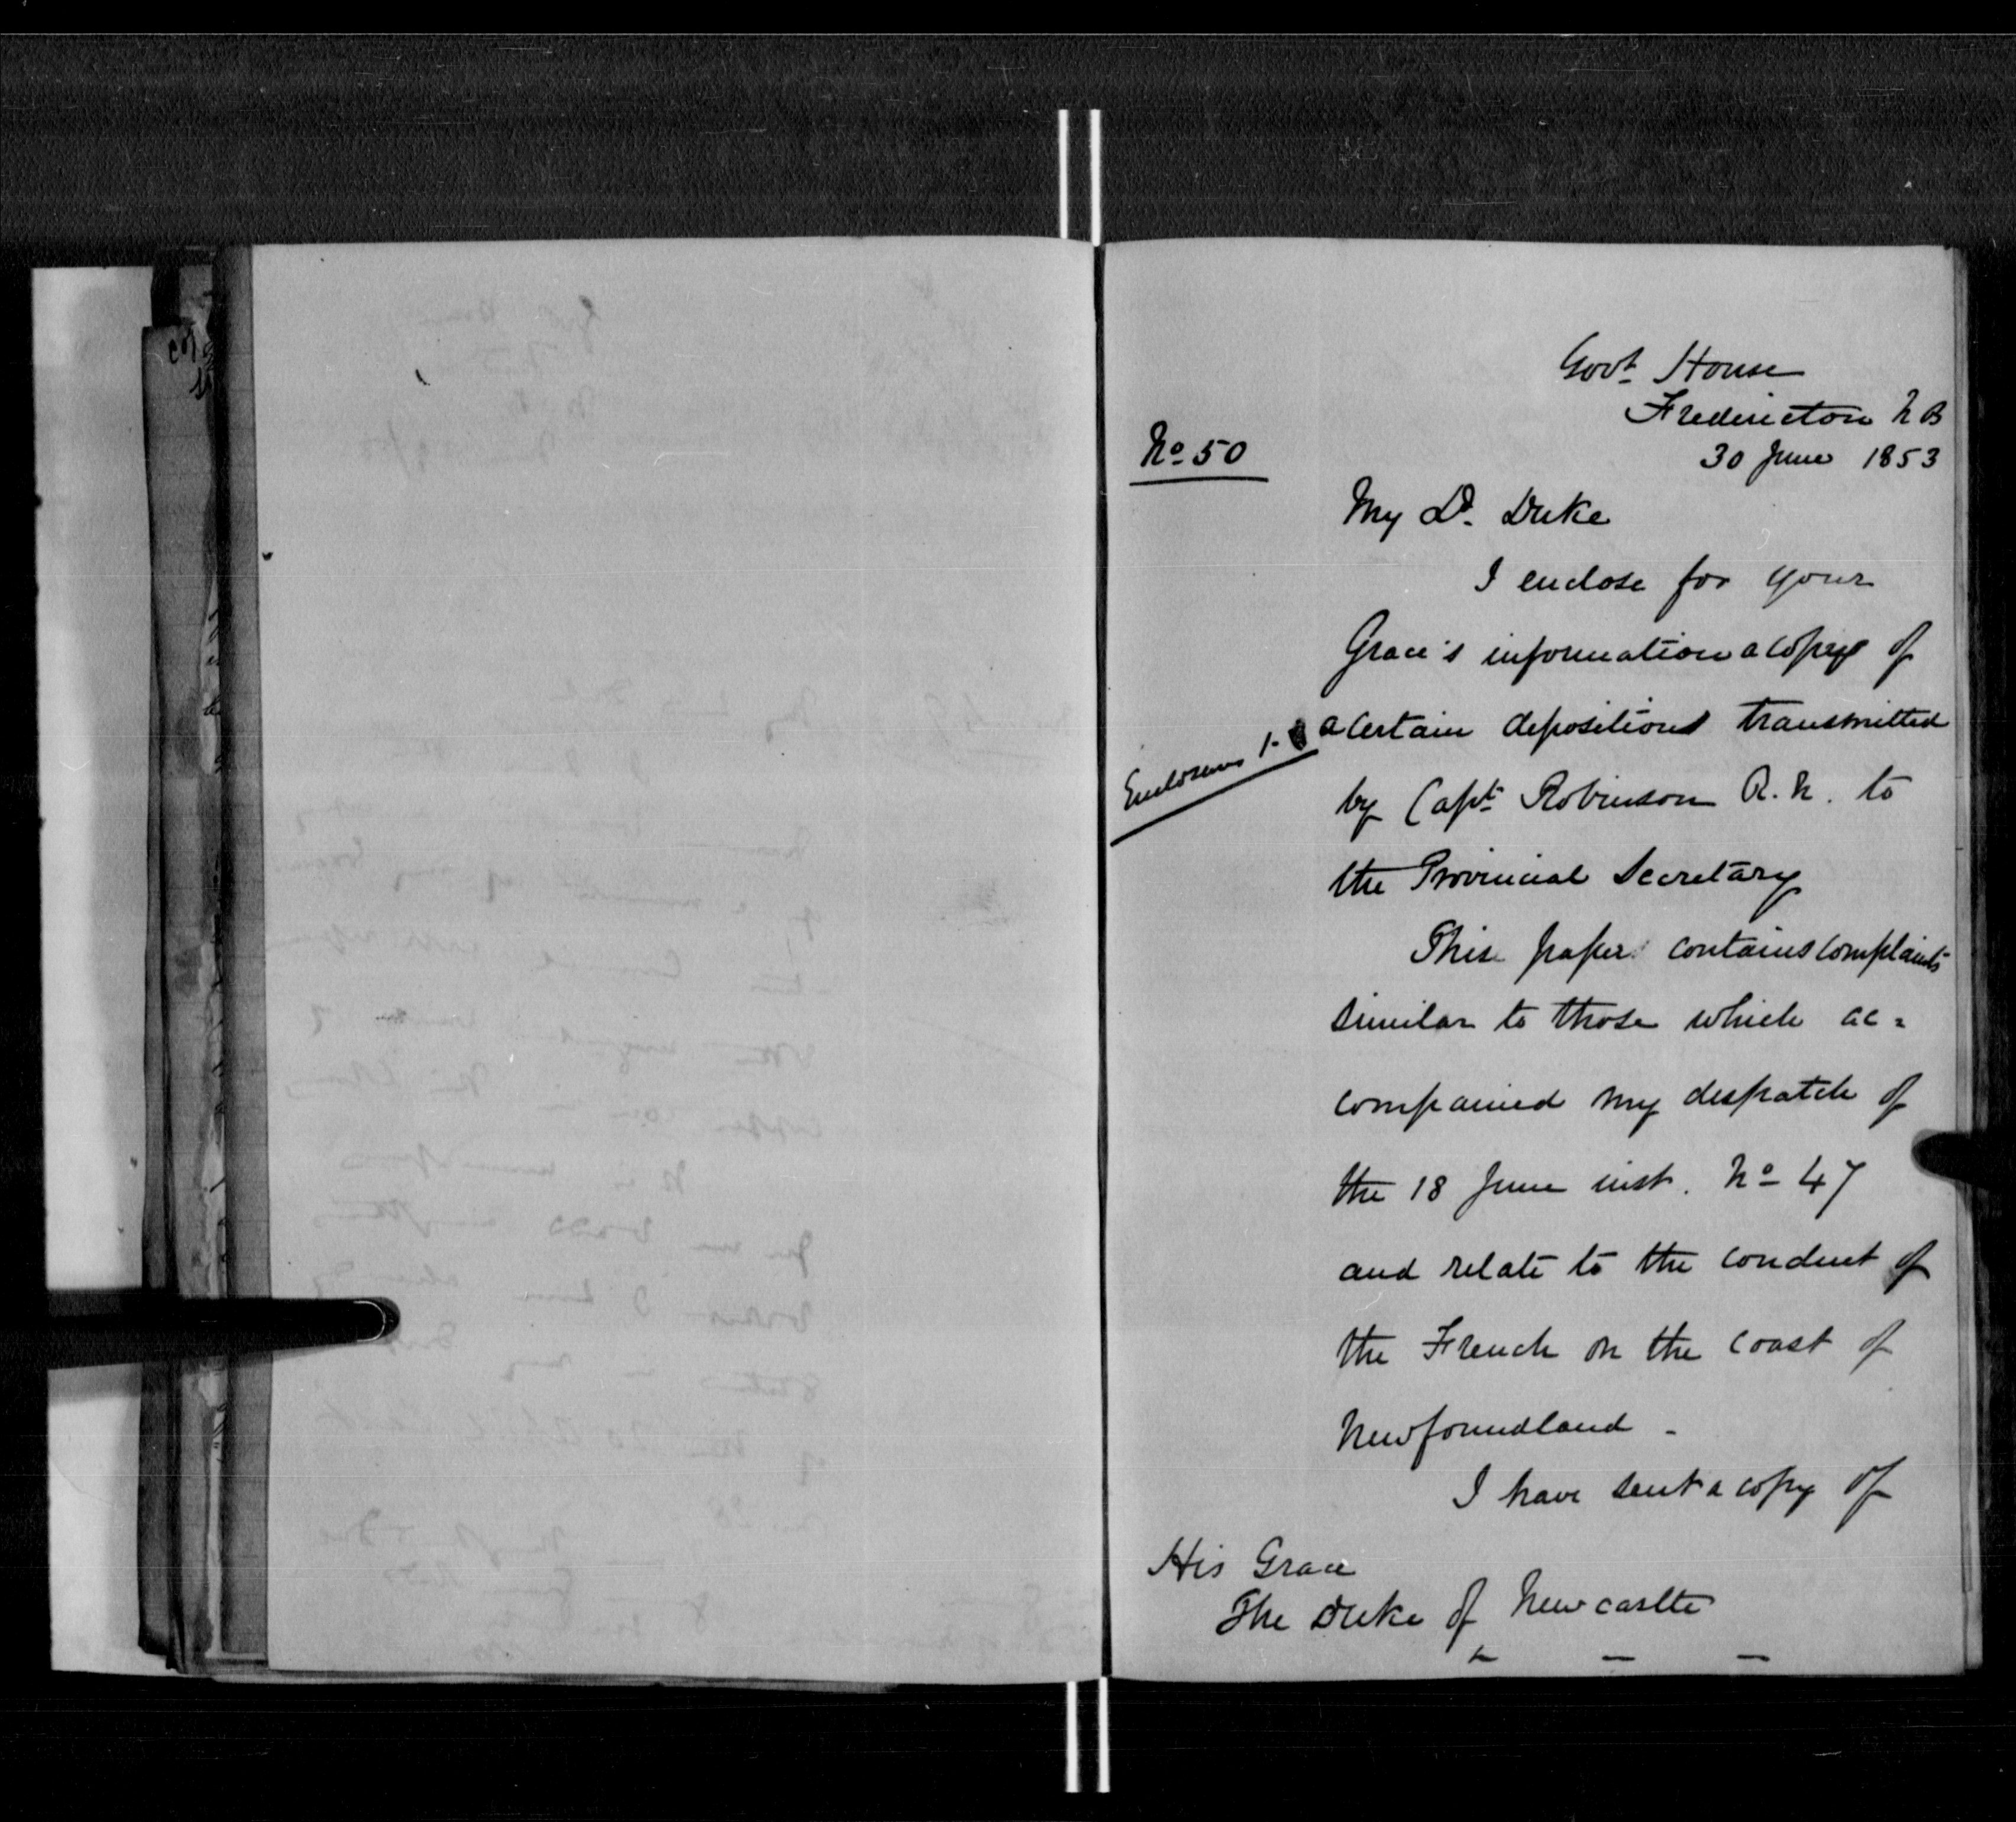 Govt House
Fredericton N B
30 June 1853
No 50
My Ld. Duke
I enclose for your
Grace's information a copy of
a certain deposition transmitted
Enclosures 1-
by Capt Robinson R.N. to
the Provincial Secretary
This paper contains complaints
similar to those which ac=
companied my despatch of
the 18 June inst. No 47
and relate to the conduct of
the French on the coast of
Newfoundland -
I have sent a copy of
His Grace
The Duke of Newcastle